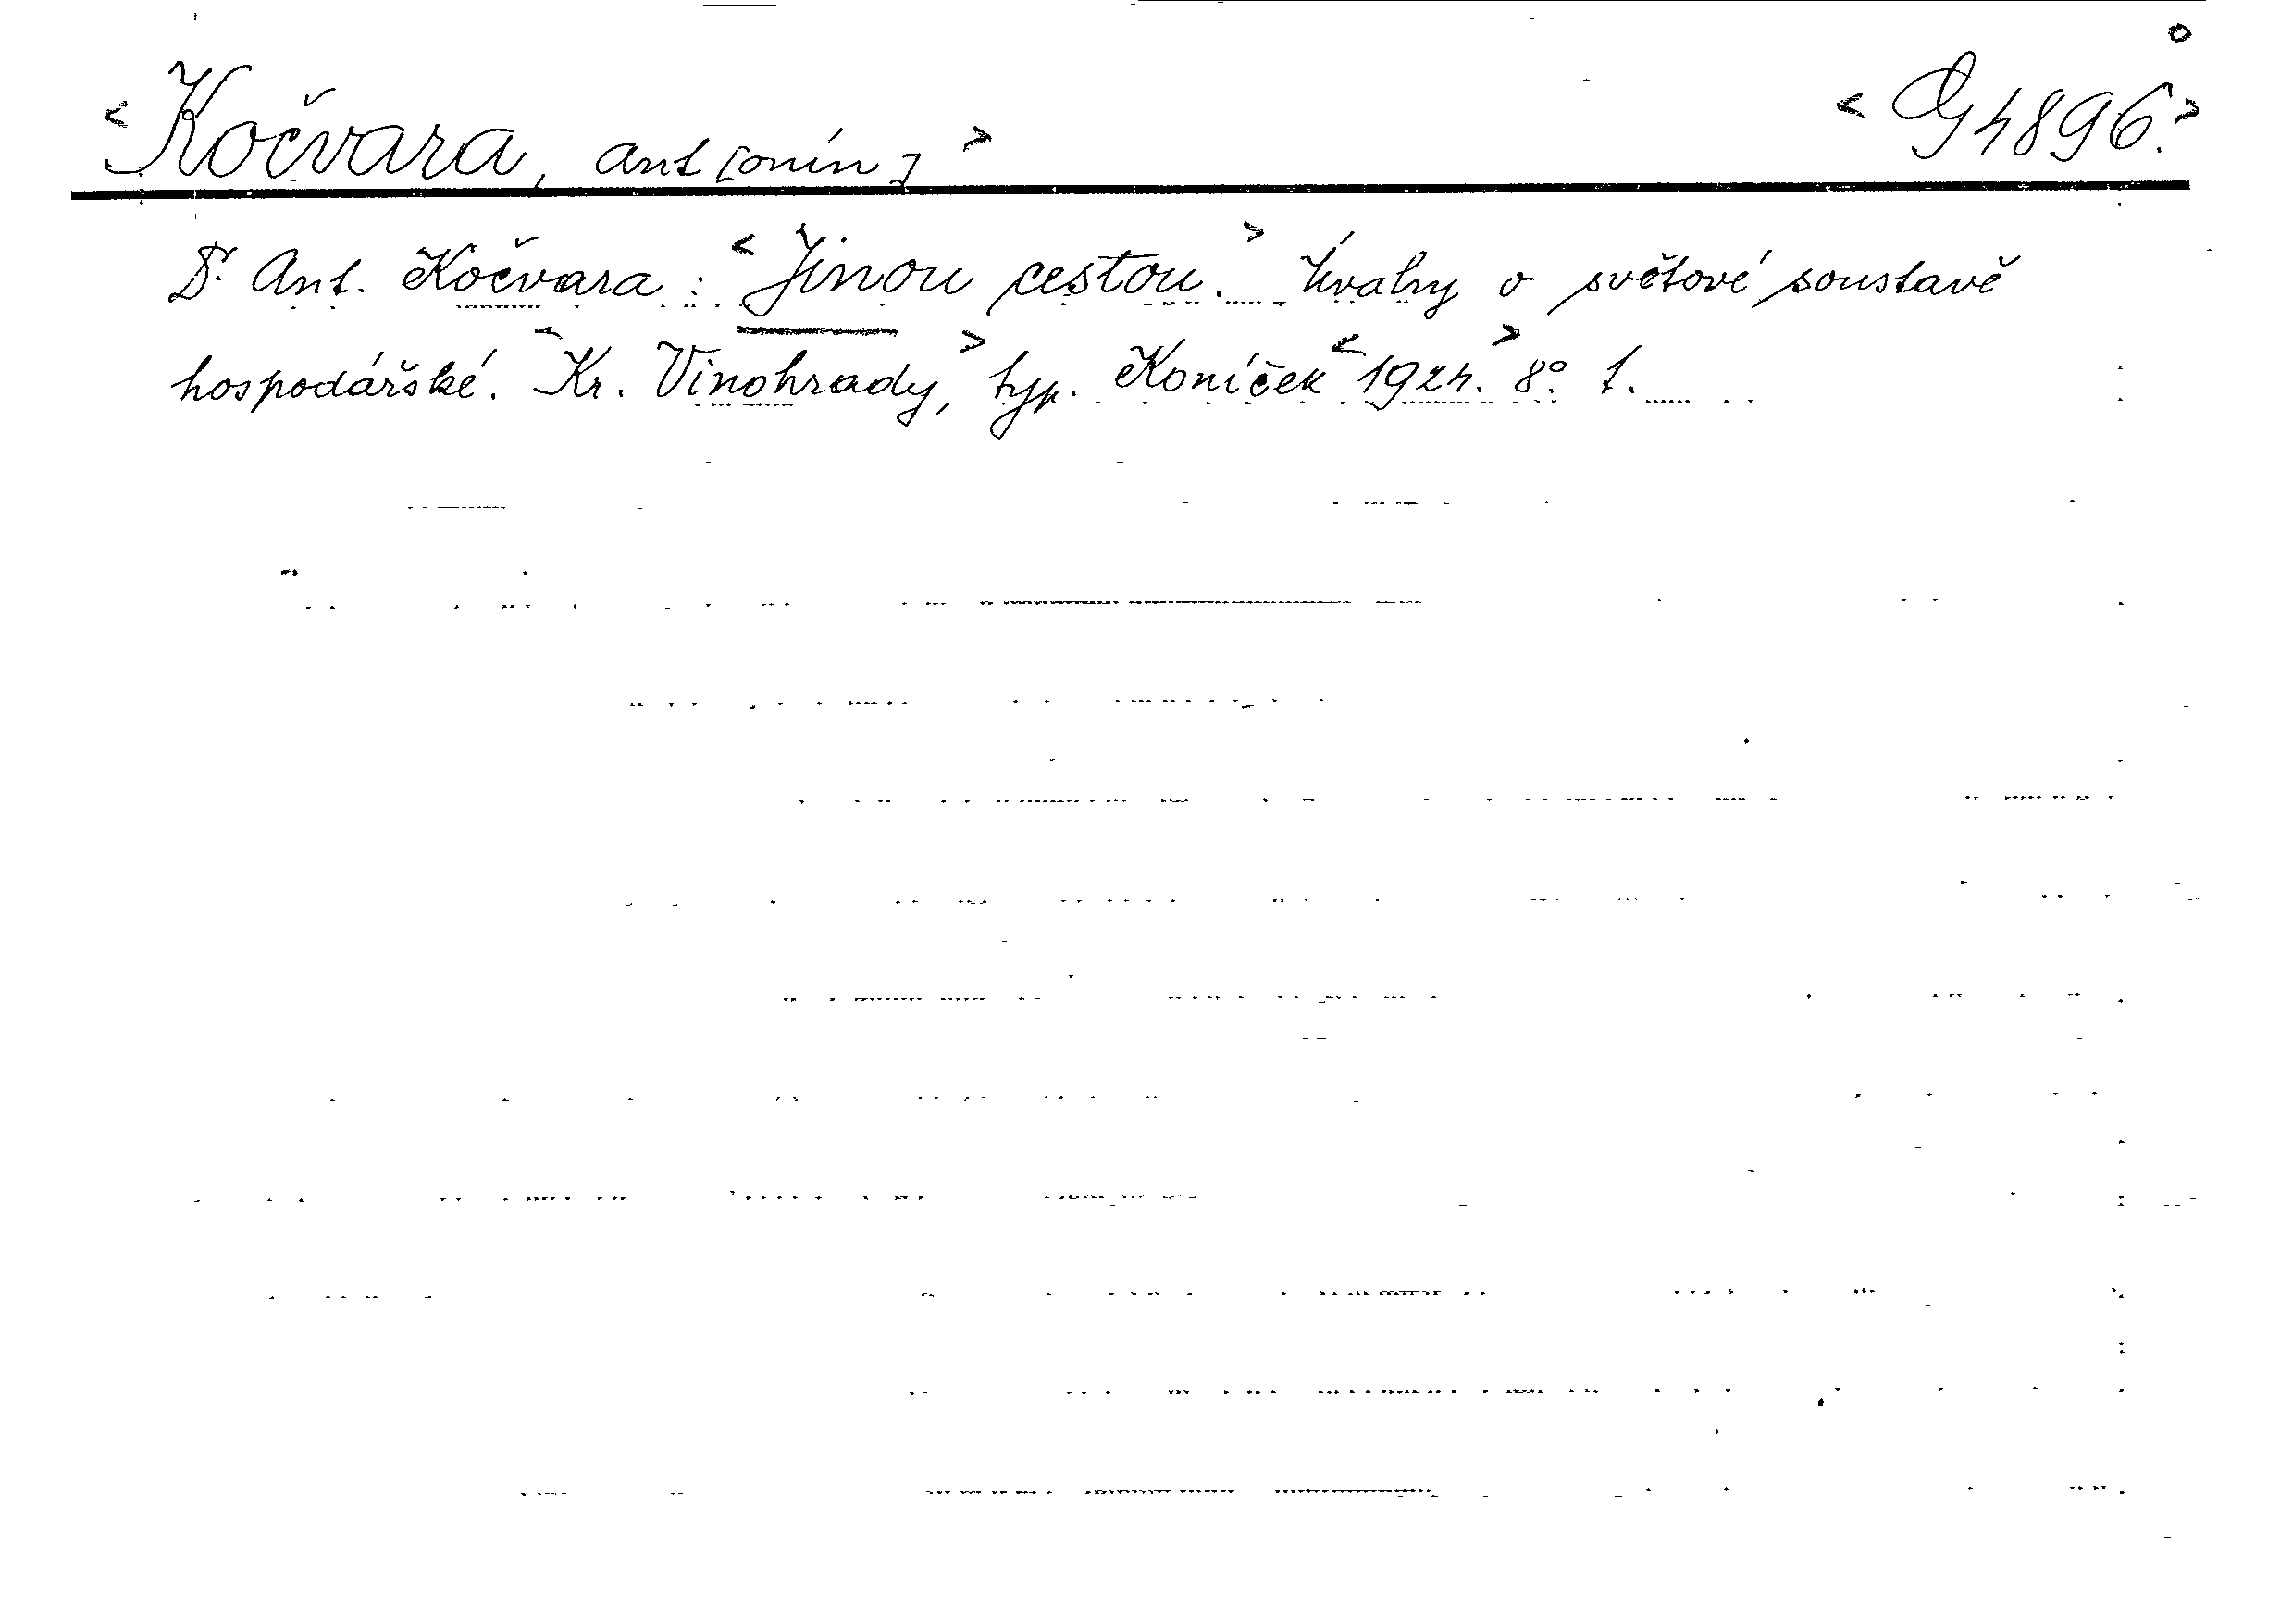 <Kočvara, Ant[onín]> <G 4896.>
Dr. Ant. Kočvara: <Jinou cestou.> Úvahy o světové soustavě
hospodářské. <Kr. Vinohrady,> typ. Koníček <1924.> 8° 1.